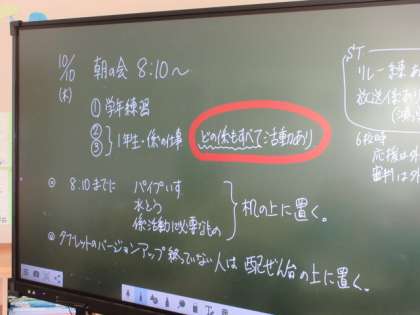 10/10 (木) 朝の会 8:10〜
① 学年練習
②③ 1年生・係の仕事 どの係もすべて活動あり
・8:10までに パイプいす
水とう
係活動に必要なもの
机の上に置く。
・タブレットのバージョンアップ終っていない人は 配ぜん台の上に置く。
ST
リレー練
放送係あり
6校時
応援は外
審判は外